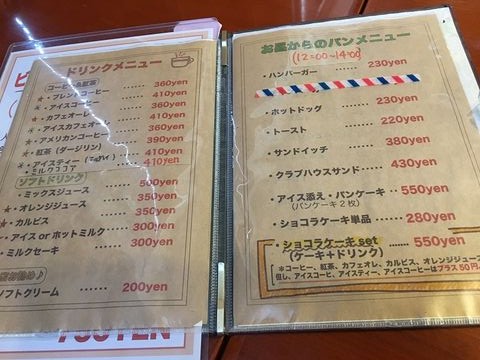 ドリンクメニュー
コーヒー
360yen
★・ブレンドコーヒー
410yen
・アイスコーヒー
360yen
★・カフェオレ
410yen
＊・アイスカフェオレ
360yen
★・アメリカンコーヒー
390yen
★・紅茶 (ダージリン)
410yen
＊・アイスティー
410yen
・ミルクココア
ソフトドリンク
500yen
・ミックスジュース
350yen
★・オレンジジュース
350yen
★・カルピス
300yen
・アイス or ホットミルク
300yen
・ミルクセーキ
ソフトクリーム ...... 200yen
お昼からのパンメニュー
(12:00~14:00)
・ハンバーガー ...... 230yen
・ホットドッグ ...... 230yen
・トースト ...... 220yen
・サンドイッチ ...... 380yen
・クラブハウスサンド ...... 430yen
・アイス添え・パンケーキ ... 550yen
(パンケーキ2枚)
・ショコラケーキ単品 ...... 280yen
・ショコラケーキset ....... 550yen
(ケーキ+ドリンク)
※コーヒー、紅茶、カフェオレ、カルピス、オレンジジュース
但し、アイスコーヒ、アイスティー、アイスコーヒーはプラス50円。